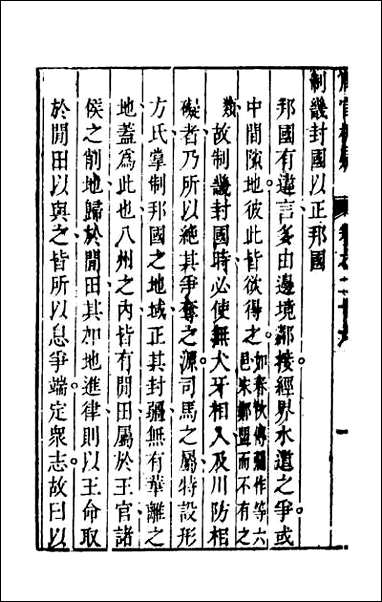 制畿封國以正邦國
邦國有違言多由邊境鄰接經界水道之爭或
中間隙地彼此皆欲得之如春秋傳彌作等六邑宋鄭盟而不有之
類故制畿封國時必使無犬牙相入及川防相
礙者乃所以絶其爭奪之源司馬之屬特設形
方氏掌制邦國之地域正其封疆無有華離之
地蓋爲此也八州之內皆有閒田屬於王官諸
侯之削地歸於閒田其加地進律則以王命取
於閒田以與之皆所以息爭端定衆志故曰以